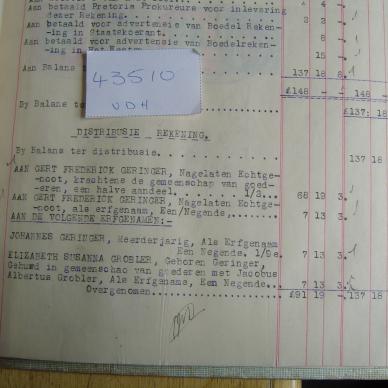 Aan betaald Pretoria Prokureure voor inlevering
dezer Rekening. 2 2 -
Aan betaald voor advertensie van Boedel Reken-
-ing in Staatskoerant. - 8 -
Aan betaald voor advertensie van Boedelreken-
-ing in Het - 15 -
Aan Balans 137 18 6.
£148 - - 148 -
By Balans ter £137: 18
43510
VDH
DISTRIBUSIE REKENING.
By Balans ter distribusie. 137 18
AAN GERT FREDERICK GERINGER, Nagelaten Echtge-
-noot, krachtens de gemeenschap van goed-
-eren, een halve aandeel. 68 19 3.
AAN GERT FREDERICK GERINGER, Nagelaten Echtge-
-noot, als erfgenaam, Een/Negende, 7 13 3.
AAN DE VOLGENDE ERFGENAMEN:-
JOHANNES GERINGER, Meerderjarig, Als Erfgenaam
Een Negende. 1/9e. 7 13 3.
ELIZABETH SUSANNA GROBLER, Geboren Geringer,
Gehuwd in gemeenschap van goederen met Jacobus
Albertus Grobler, Als Erfgename, Een Negende.. 7 13 3.
Overgenomen £91 19 -. 137 18